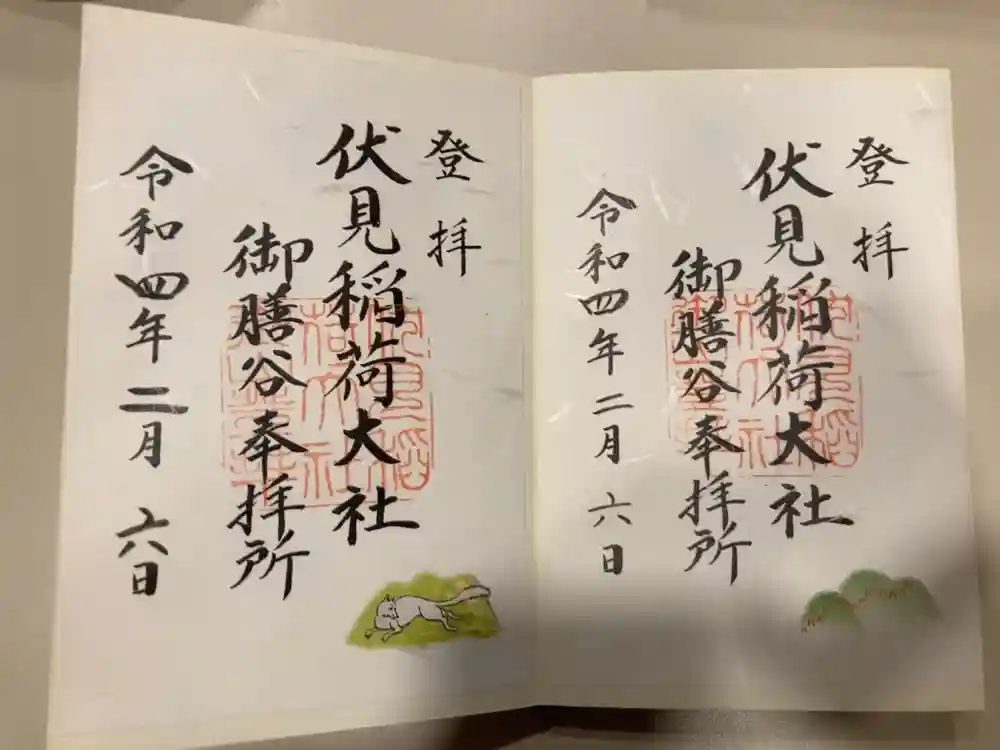 登拝
伏見稲荷大社
御膳谷奉拝所
令和四年二月六日
登拝
伏見稲荷大社
御膳谷奉拝所
令和四年二月六日